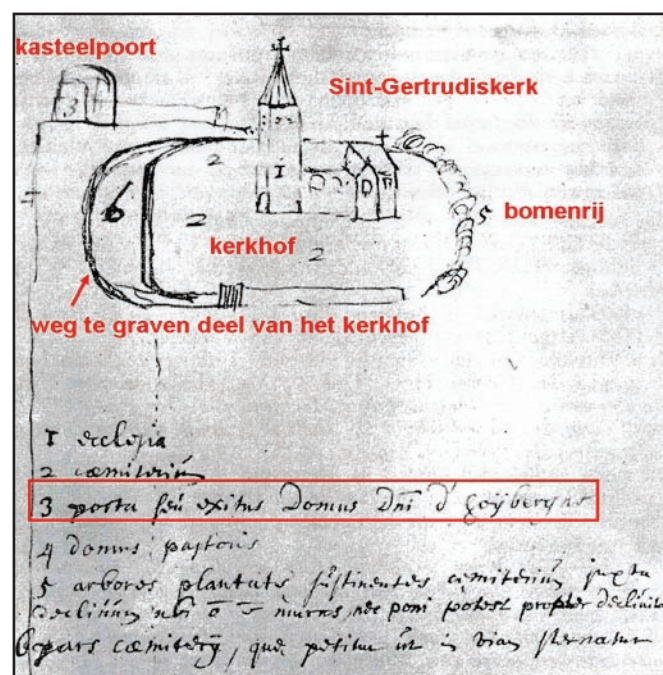 kasteelpoort
Sint-Gertrudiskerk
3
2
1
2
5
bomenrij
6
kerkhof
2
4
weg te graven deel van het kerkhof
1 ecclesia
2 cæmiterium
3 porta seu exitus Domus Dni d'
4 domus pastoris
5 arbores plantate sustinentes cæmiterium juxta
declivium ubi murus, nec poni potest propter
6 pars cæmiterii, que petitur ut in viam sternatur